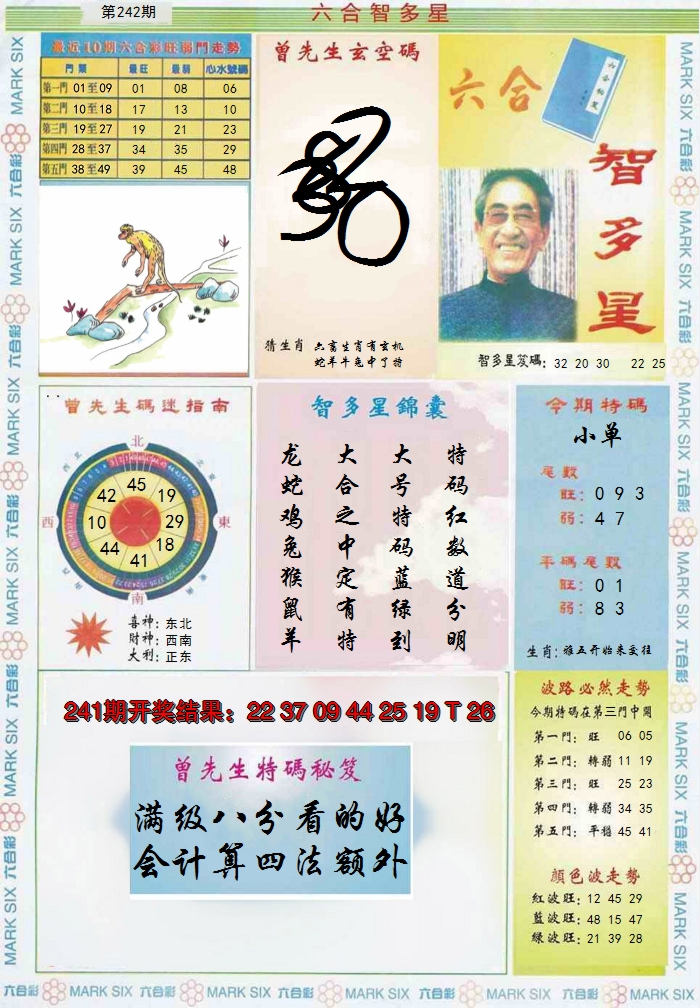 第242期
六合智多星
最近10期六合彩旺弱門走勢
門類 最旺 最弱 心水號碼
第一門 01至09 01 08 06
第二門 10至18 17 13 10
第三門 19至27 19 21 23
第四門 28至37 34 35 29
第五門 38至49 39 45 48
曾先生玄空碼
猜生肖 六畜生肖有玄机
蛇羊牛兔中了特
六合
智多星
智多星笈碼: 32 20 30 22 25
曾先生碼迷指南
北
西
東
南
45
19
29
18
41
44
10
42
喜神: 东北
财神: 西南
大利: 正东
智多星錦囊
特码红数道分明
大号特码蓝绿到
大合之中定有特
龙蛇鸡兔猴鼠羊
今期特碼
小单
尾數
旺: 0 9 3
弱: 4 7
平碼尾數
旺: 0 1
弱: 8 3
生肖: 雅五开始来交往
241期开奖结果: 22 37 09 44 25 19 T 26
曾先生特碼秘笈
满级八分看的好
会计算四法额外
波路必然走勢
今期特碼在第三門中開
第一門: 旺 06 05
第二門: 轉弱 11 19
第三門: 旺 25 23
第四門: 轉弱 34 35
第五門: 平穩 45 41
顏色波走勢
紅波旺: 12 45 29
藍波旺: 48 15 47
綠波旺: 21 39 28
六合彩 MARK SIX 六合彩 MARK SIX 六合彩 MARK SIX 六合彩 MARK SIX 六合彩 MARK SIX